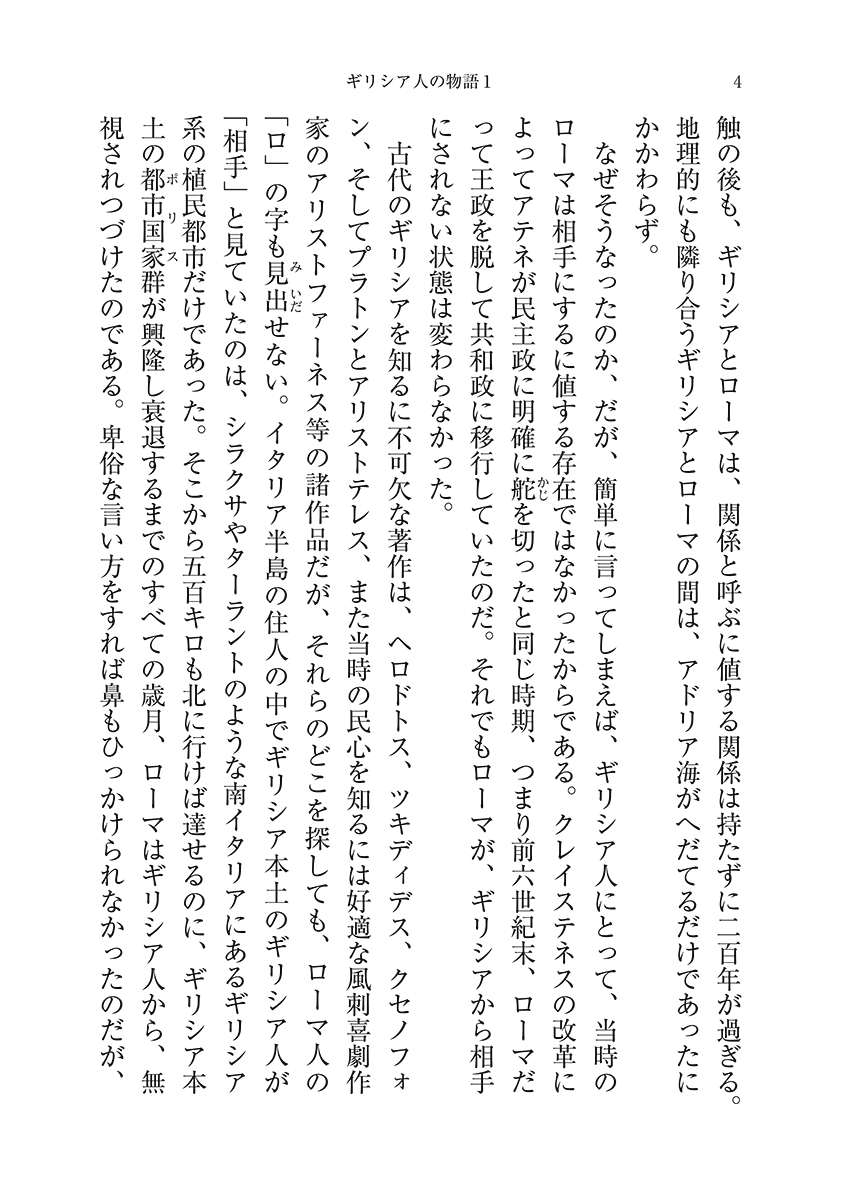 ギリシア人の物語1
4
触の後も、ギリシアとローマは、関係と呼ぶに値する関係は持たずに二百年が過ぎる。
地理的にも隣り合うギリシアとローマの間は、アドリア海がへだてるだけであったに
かかわらず。
なぜそうなったのか、だが、簡単に言ってしまえば、ギリシア人にとって、当時の
ローマは相手にするに値する存在ではなかったからである。クレイステネスの改革に
よってアテネが民主政に明確に舵を切ったと同じ時期、つまり前六世紀末、ローマだ
かじ
って王政を脱して共和政に移行していたのだ。それでもローマが、ギリシアから相手
にされない状態は変わらなかった。
古代のギリシアを知るに不可欠な著作は、ヘロドトス、ツキディデス、クセノフォ
ン、そしてプラトンとアリストテレス、また当時の民心を知るには好適な風刺喜劇作
家のアリストファーネス等の諸作品だが、それらのどこを探しても、ローマ人の
「ロ」の字も見出せない。イタリア半島の住人の中でギリシア本土のギリシア人が
みいだ
「相手」と見ていたのは、シラクサやターラントのような南イタリアにあるギリシア
系の植民都市だけであった。そこから五百キロも北に行けば達せるのに、ギリシア本
土の都市国家群が興隆し衰退するまでのすべての歳月、ローマはギリシア人から、無
ポリス
視されつづけたのである。卑俗な言い方をすれば鼻もひっかけられなかったのだが、